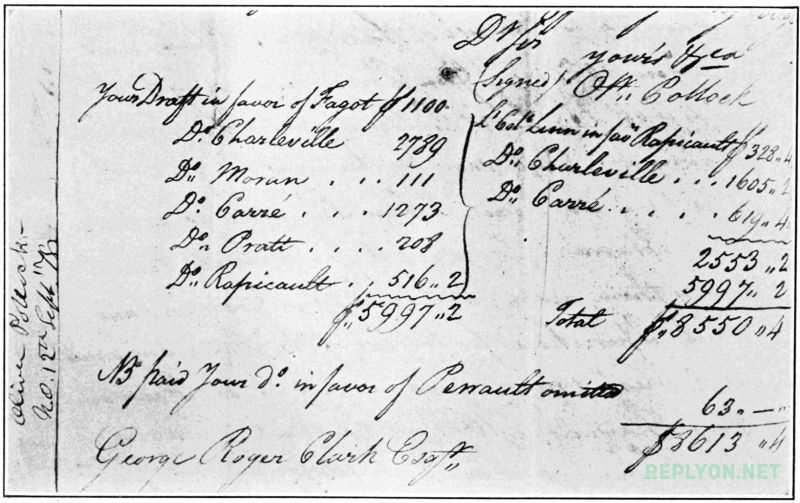 Dr Sir
your's &ca
(Signed) Olr. Pollock
Your Draft in favor of Fagot $ 1100
Do. Charleville 2789
Do. Moran . . . 111
Do. Carré . . . 1273
Do. Pratt . . . . 208
Do. Rapicault . . 516 ,, 2
$ ,, 5997 ,, 2
Lt. Col. Linn in favr. Rapicault $ 328 ,, 4
Do. Charleville . . . 1605 ,, 2
Do. Carré . . . . . 619 ,, 4
2553 ,, 2
5997 ,, 2
Total $ ,, 8550 ,, 4
NB. paid Your do. in favor of Perrault omitted
63 ,, — ,,
$ 8613 ,, 4
George Roger Clark Esqr. ,,
Oliver Pollock.—
N.O. 12th Sept.
REPLYON.NET